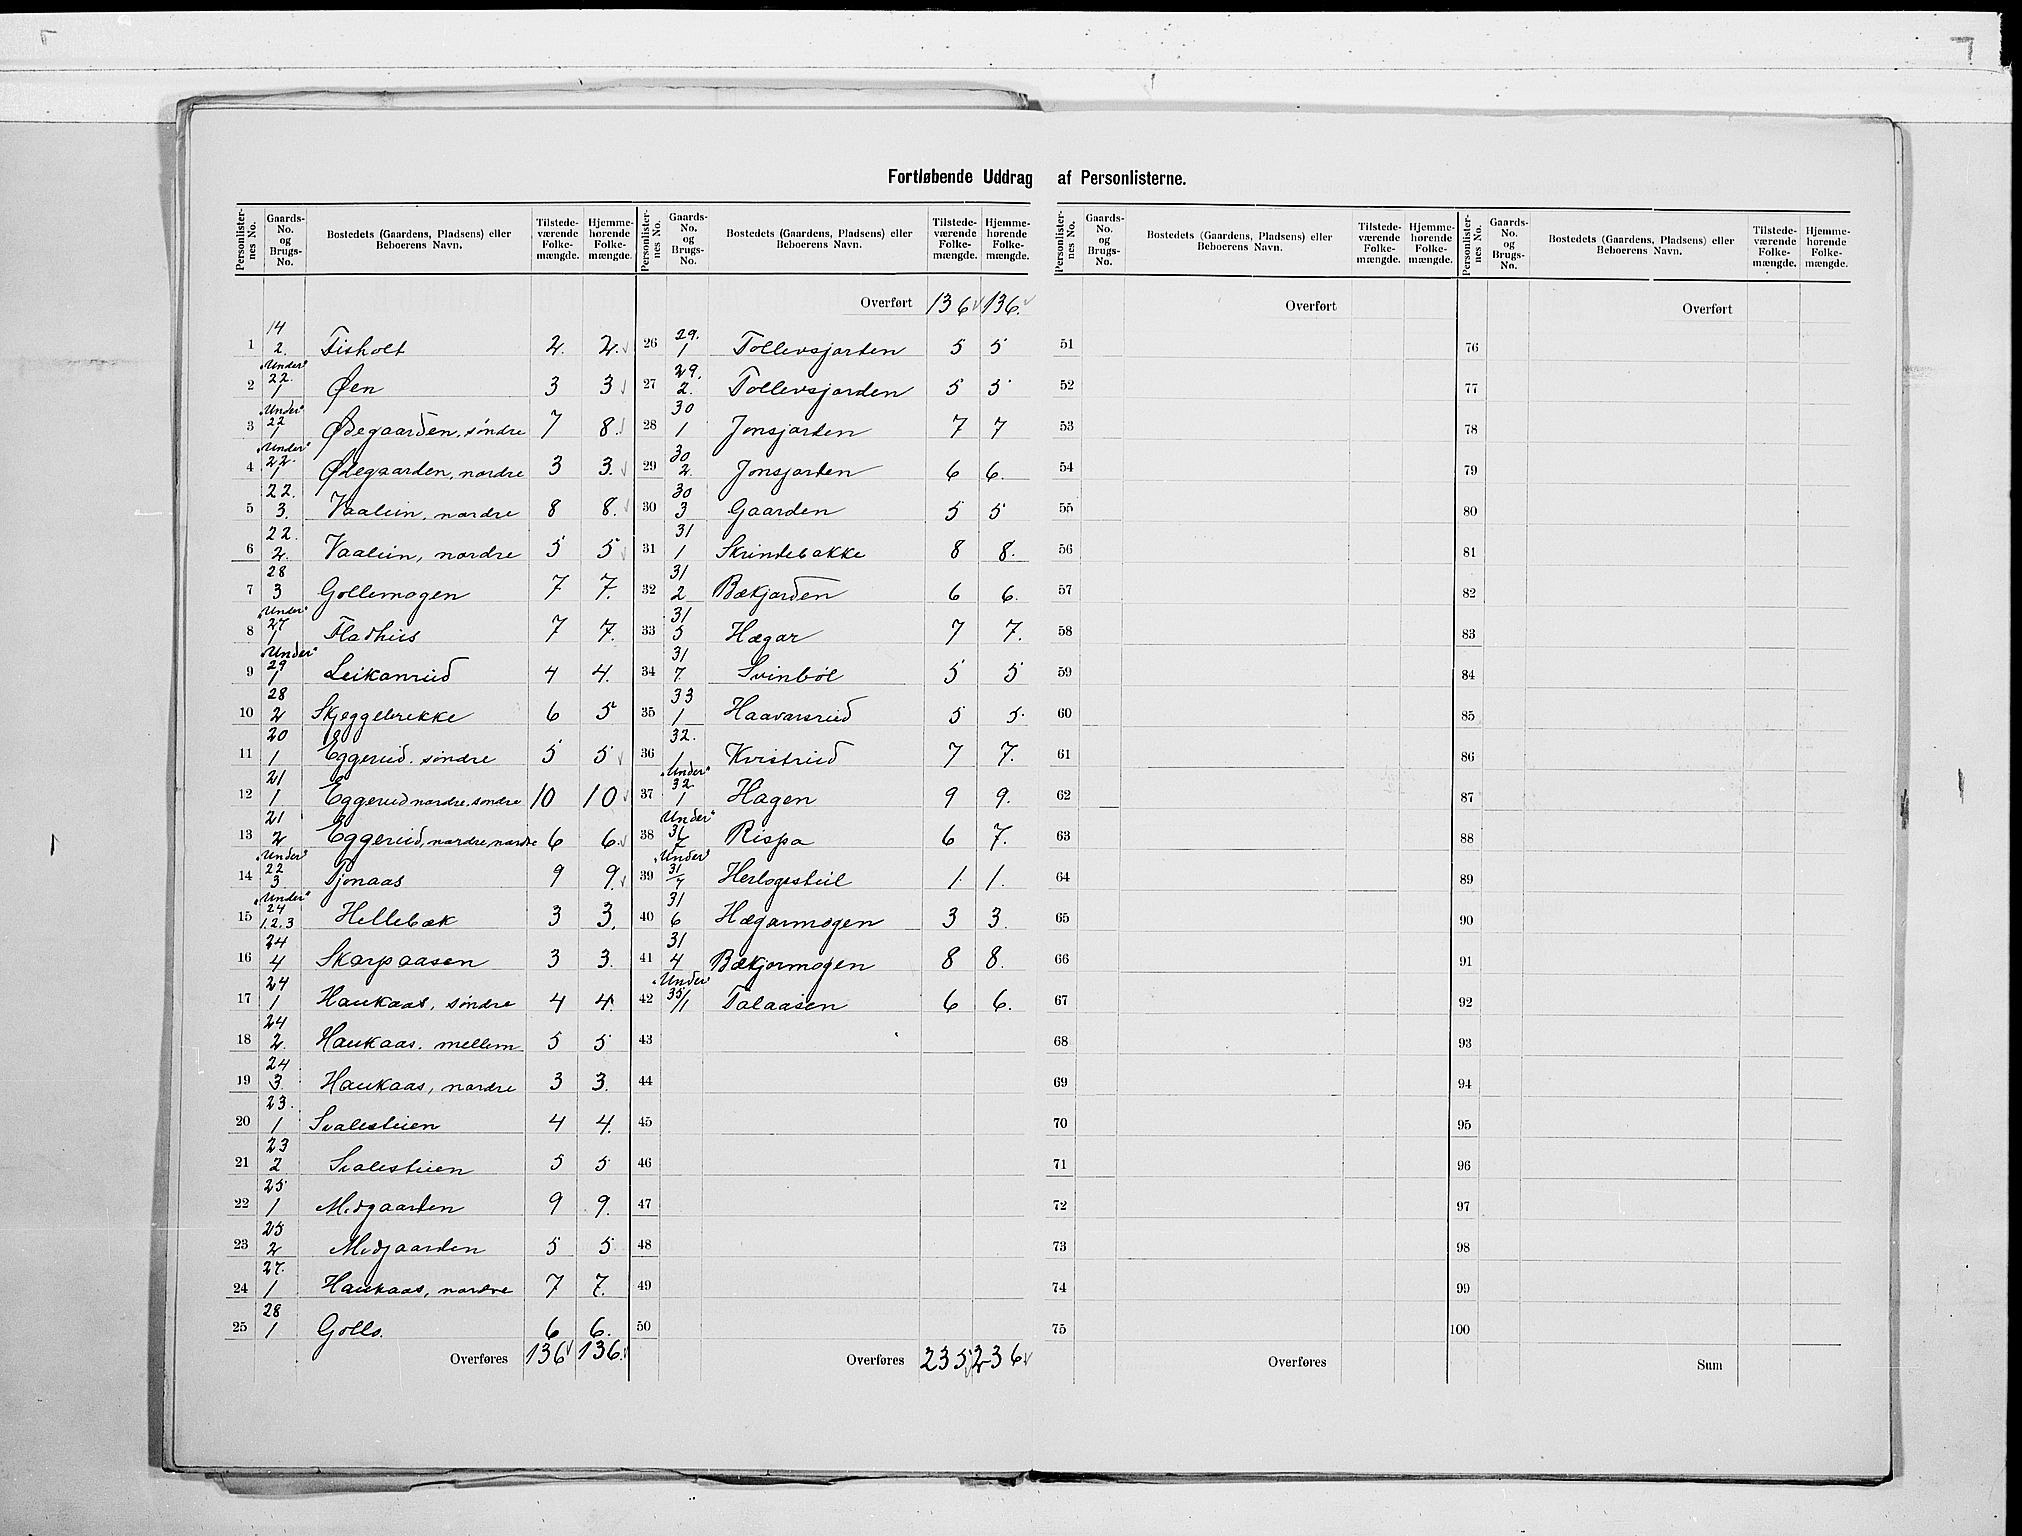 Fortløbende Uddrag af Personlisterne.
Personlisternes No. Gaards-No. og Brugs-No. Bostedets (Gaardens, Pladsens) eller Beboerens Navn. Tilstedeværende Folkemængde. Hjemmehørende Folkemængde.
1 14 2. Fisholt 2. 2.
2 "Under" 22. 1 Øen 3 3
3 "Under" 22 1 Ødegaarden, søndre 7 8.
4 "Under" 22. 1 Ødegaarden, nordre 3 3.
5 22. 3. Vaalein, nordre 8 8.
6 22. 2. Vaalein, nordre 5 5
7 28 3 Gollemogen 7 7.
8 "Under" 27 1 Fladhus 7 7.
9 "Under" 29 1 Leikanrud 4 4.
10 28 2 Skjeggebrekke 6 5
11 20 1 Eggerud, søndre 5 5
12 21 1 Eggerud nordre, søndre 10 10
13 21 2 Eggerud, nordre, nordre 6 6.
14 "Under" 22 3 Tjønaas 9 9.
15 "Under" 24 1.2.3 Hellebæk 3 3.
16 24 4 Skarpaasen 3 3.
17 24 1 Haukaas, søndre 4 4.
18 24 2. Haukaas, mellem 5 5
19 24 3. Haukaas, nordre 3 3.
20 23. 1 Svalesteien 4 4.
21 23 2 Svalesteien 5 5
22 25 1 Midgaarden 9 9.
23 25 2 Midgaarden 5 5
24 27. 1 Haukaas, nordre 7 7.
25 28 1 Golls. 6 6.
Overføres 136 136.
Personlisternes No. Gaards-No. og Brugs-No. Bostedets (Gaardens, Pladsens) eller Beboerens Navn. Tilstedeværende Folkemængde. Hjemmehørende Folkemængde.
Overført 136 136.
26 29. 1 Tollevsjorden 5 5
27 29. 2. Tollevsjorden 5 5
28 30 1 Jonsjorden 7 7
29 30 2. Jonsjorden 6 6.
30 30 3 Gaarden 5 5
31 31 1 Skrindebakke 8 8.
32 31 2 Bækjorden 6 6.
33 31 5 Hægar 7 7.
34 31 7 Svinbøl 5 5
35 33 1 Haavarsrud 5 5.
36 32. 1 Kvistrud 7 7.
37 "Under" 32. 1 Hagen 9 9.
38 Under" 31 7 Rispa 6 7.
39 "Under" 31 7 Herlogsteil 1 1.
40 31 6 Hægarmogen 3 3.
41 31 4 Bækjormogen 8 8.
42 "Under" 35/1 Talaasen 6 6.
43
44
45
46
47
48
49
50
Overføres 235 236
Personlisternes No. Gaards-No. og Brugs-No. Bostedets (Gaardens, Pladsens) eller Beboerens Navn. Tilstedeværende Folkemængde. Hjemmehørende Folkemængde.
Overført
51
52
53
54
55
56
57
58
59
60
61
62
63
64
65
66
67
68
69
70
71
72
73
74
75
Overføres
Personlisternes No. Gaards-No. og Brugs-No. Bostedets (Gaardens, Pladsens) eller Beboerens Navn. Tilstedeværende Folkemængde. Hjemmehørende Folkemængde.
Overført
76
77
78
79
80
81
82
83
84
85
86
87
88
89
90
91
92
93
94
95
96
97
98
99
100
Sum